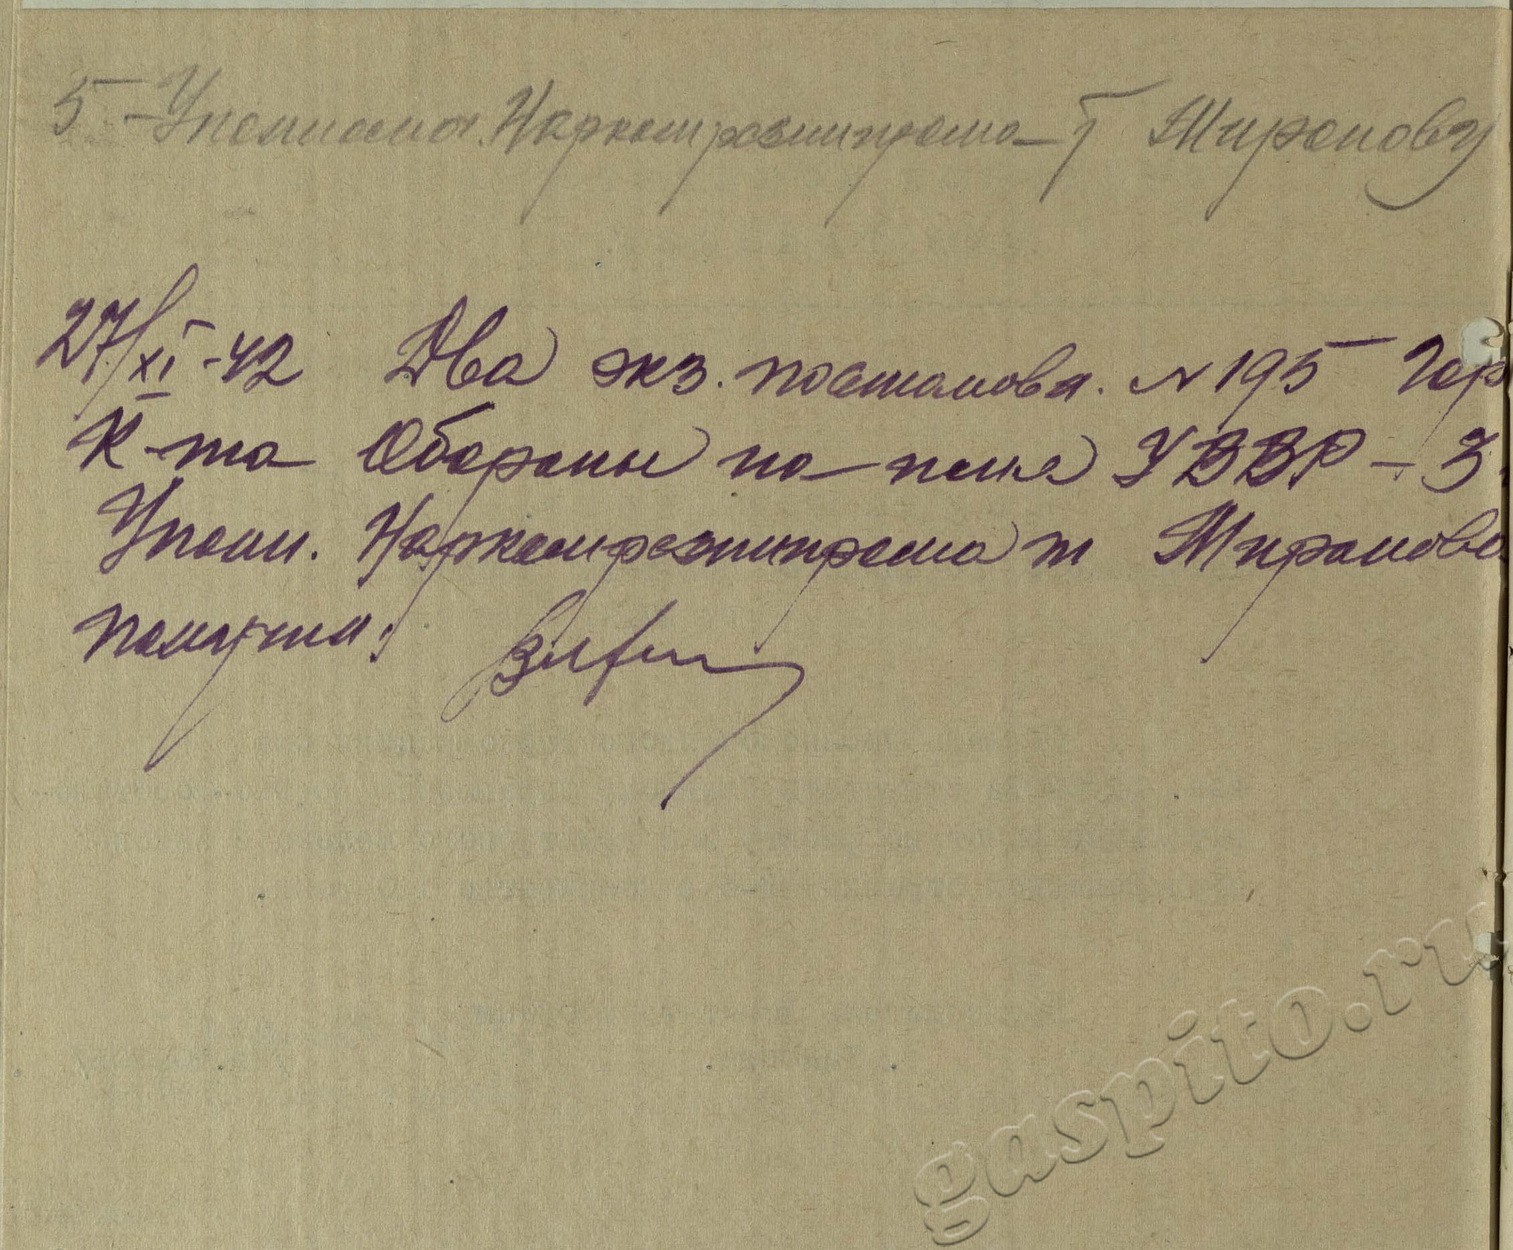 5 - Уполномоч. Наркомрезинпрома т Миронову
27/XI-42 Два экз. постанов. N 195 Гор
К-та Обороны по УВВР - 3
Уполн. Наркомрезинпрома т Миронова
получил:
gaspito.ru